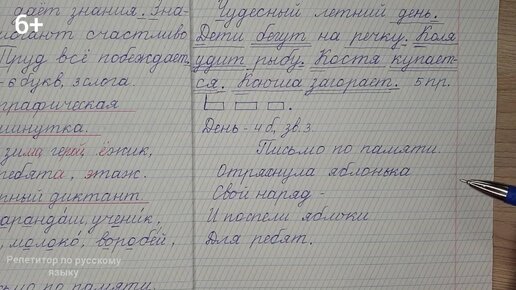 6+
даёт знания. Зна-
могают счастливо
Труд всё побеждает.
- 6 букв, 3 слога.
графическая
минутка.
зима, герой, ёжик,
ребята, этаж.
ный диктант
арандаш, ученик,
, молоко, воробей,
сьмо по памяти.
Чудесный летний день.
Дети бегут на речку. Коля
удит рыбу. Костя купает-
ся. Ксюша загорает. 5 пр.
День - 4 б., зв. 3.
Письмо по памяти.
Отряхнула яблонька
Свой наряд -
И поспели яблоки
Для ребят.
Репетитор по русскому
языку